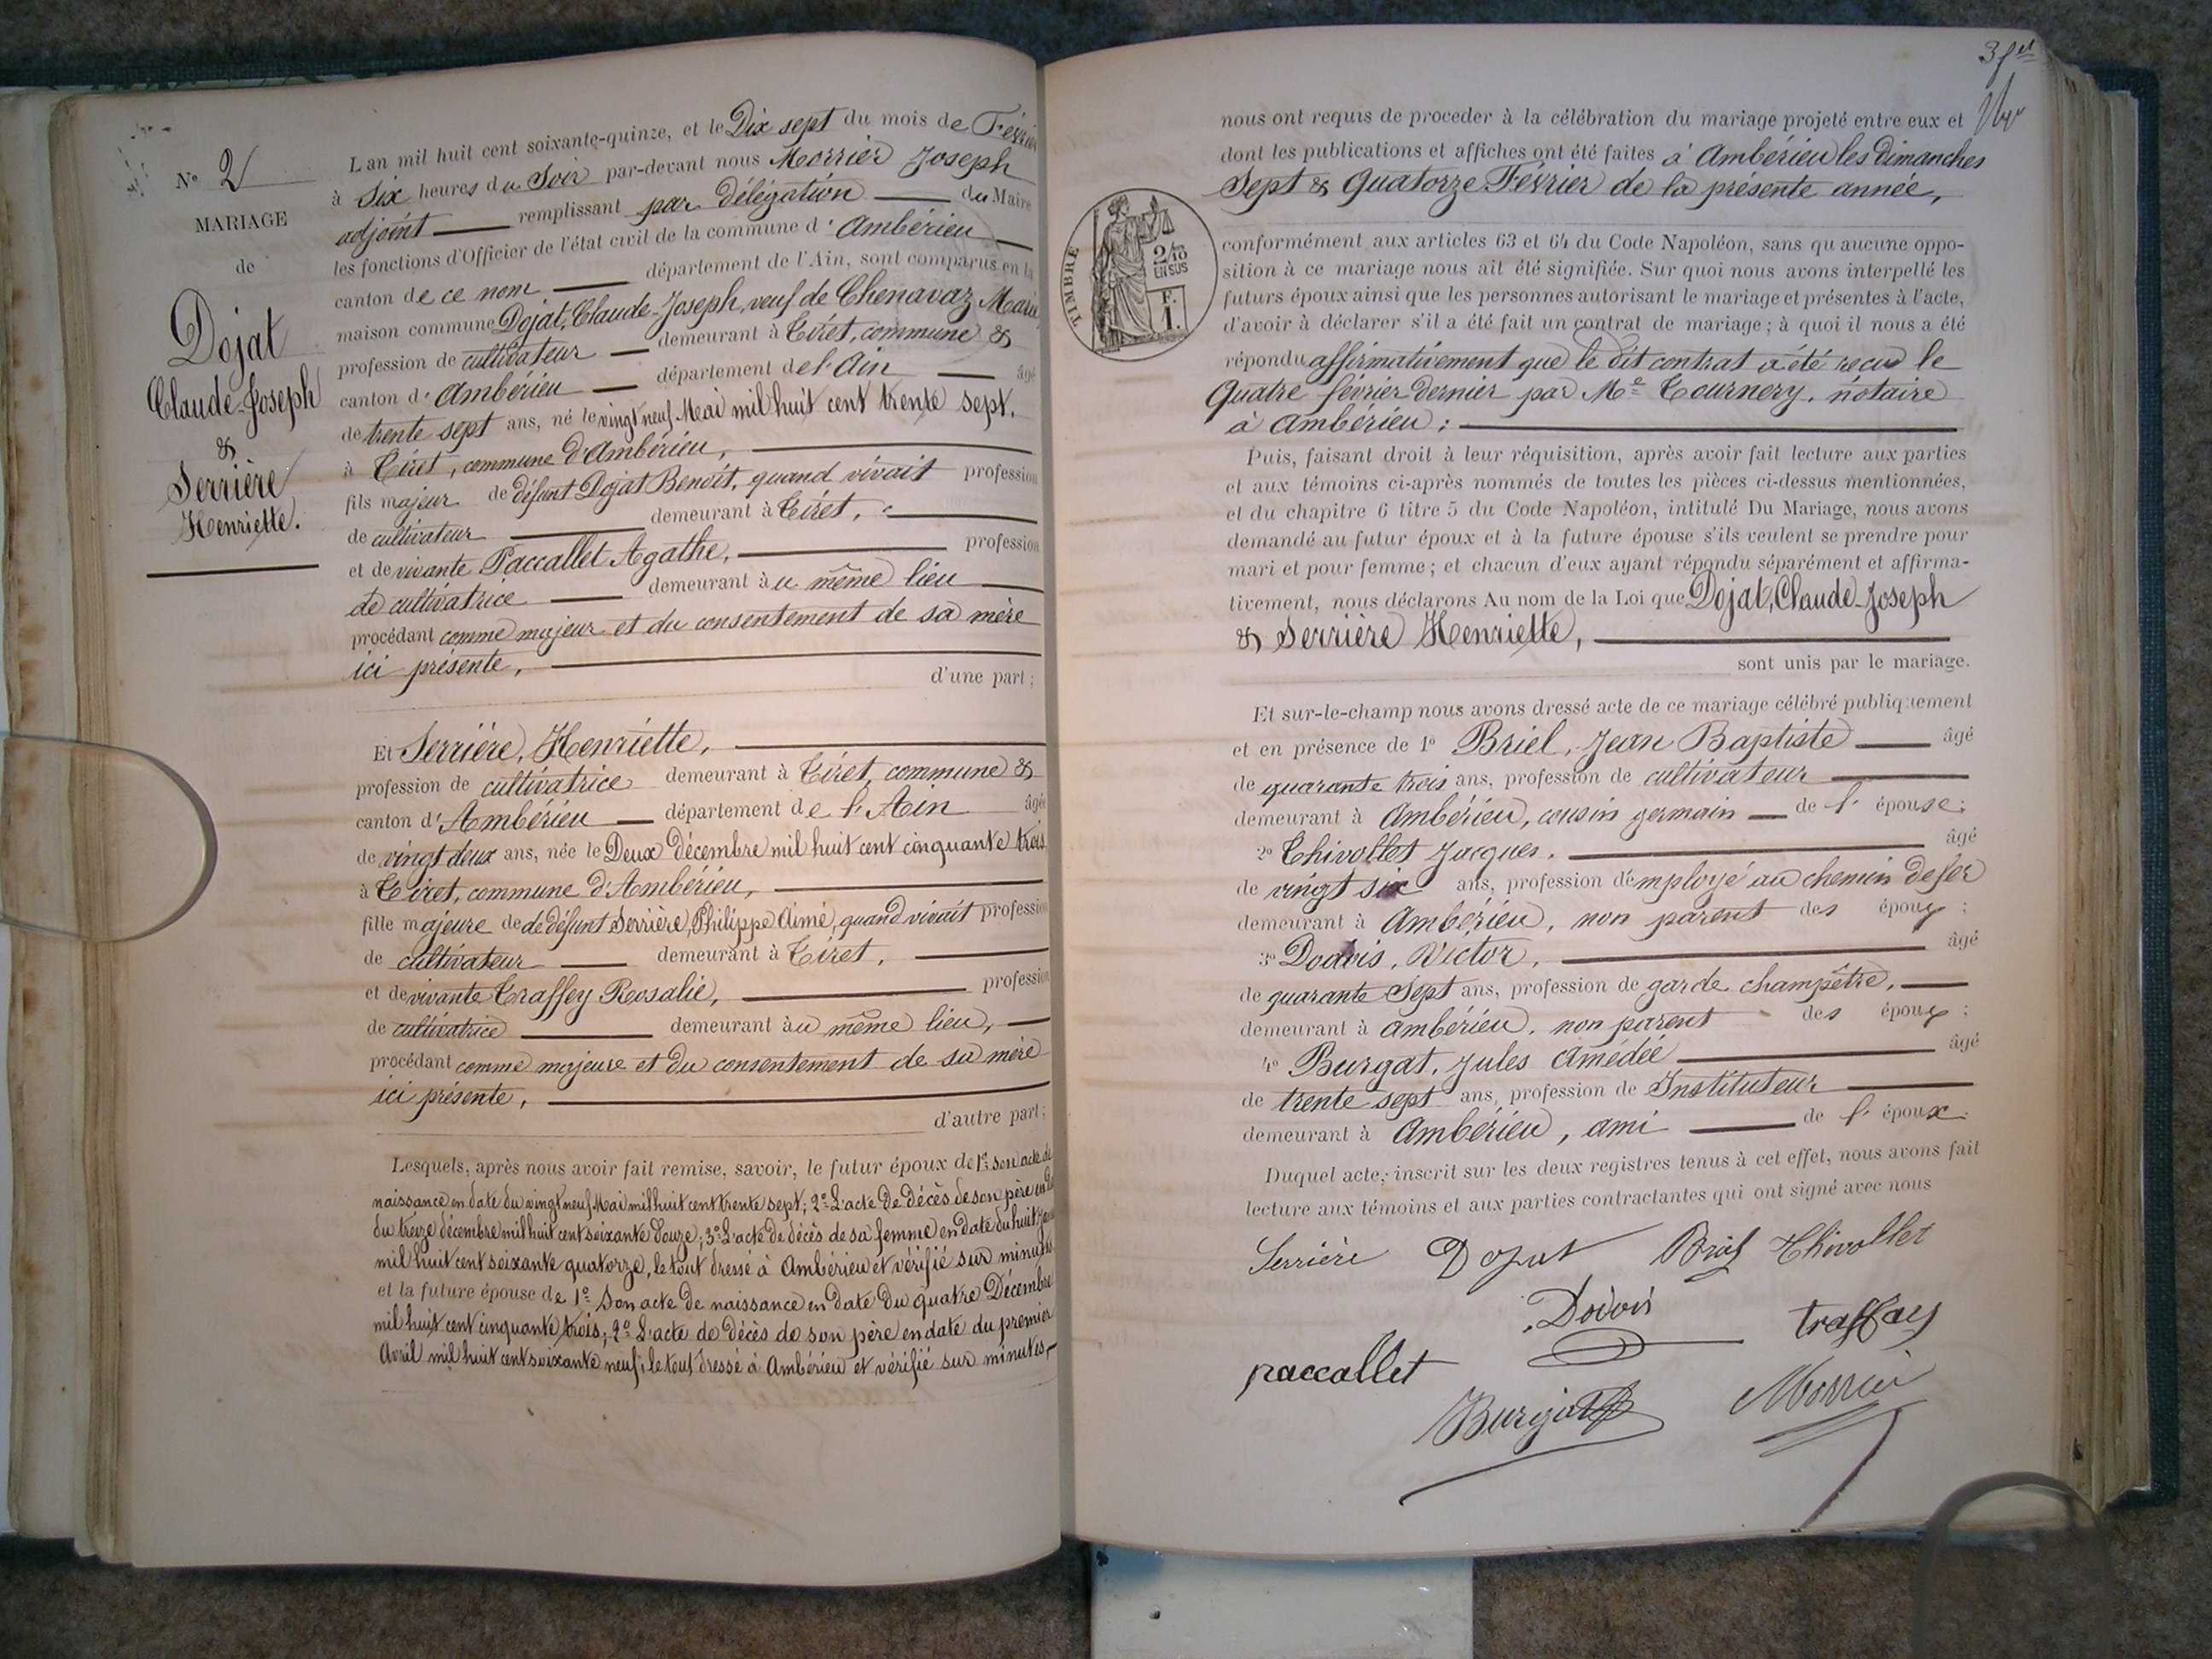 N° 2
MARIAGE
de
Dojat
Claude-Joseph
&
Serrière
Henriette.
L'an mil huit cent soixante-quinze, et le Dix sept du mois de Février
à Six heures du Soir par-devant nous Morrier Joseph
adjoint remplissant par délégation du Maire
les fonctions d'Officier de l'état civil de la commune d'Ambérieu
canton de ce nom département de l'Ain, sont comparus en la
maison commune Dojat, Claude-Joseph, veuf de Chenavaz Marie,
profession de cultivateur demeurant à Tiret, commune &
canton d'Ambérieu département de l'Ain âgé
de trente sept ans, né le vingt neuf Mai mil huit cent trente sept,
à Tiret, commune d'Ambérieu,
fils majeur de défunt Dojat Benoît, quand vivait profession
de cultivateur demeurant à Tiret,
et de vivante Paccallet Agathe, profession
de cultivatrice demeurant àu même lieu
procédant comme majeur et du consentement de sa mère
ici présente,
d'une part;
Et Serrière, Henriette,
profession de cultivatrice demeurant à Tiret, commune &
canton d'Ambérieu département de l'Ain âgée
de vingt deux ans, née le Deux décembre mil huit cent cinquante trois
à Tiret, commune d'Ambérieu,
fille majeure de de défunt Serrière, Philippe Aimé, quand vivait profession
de cultivateur demeurant à Tiret,
et de vivante Traffey Rosalie, profession
de cultivatrice demeurant àu même lieu,
procédant comme majeure et du consentement de sa mère
ici présente,
d'autre part;
Lesquels, après nous avoir fait remise, savoir, le futur époux de 1° son acte de
naissance en date du vingt neuf Mai mil huit cent trente sept; 2° L'acte de décès de son père en date
du treize décembre mil huit cent soixante douze; 3° L'acte de décès de sa femme en date du huit
mil huit cent soixante quatorze, le tout dressé à Ambérieu et vérifié sur minutes
et la future épouse de 1° Son acte de naissance en date du quatre Décembre
mil huit cent cinquante trois; 2° L'acte de décès de son père en date du premier
Avril mil huit cent soixante neuf; le tout dressé à Ambérieu et vérifié sur minutes,
nous ont requis de proceder à la célébration du mariage projeté entre eux et
dont les publications et affiches ont été faites à Ambérieu les dimanches
Sept & Quatorze Février de la présente année,
TIMBRE
2/10
EN SUS
F.
1.
conformément aux articles 63 et 64 du Code Napoléon, sans qu'aucune oppo-
sition à ce mariage nous ait été signifiée. Sur quoi nous avons interpellé les
futurs époux ainsi que les personnes autorisant le mariage et présentes à l'acte,
d'avoir à déclarer s'il a été fait un contrat de mariage; à quoi il nous a été
répondu affirmativement que le dit contrat a été recu le
Quatre février dernier par Me Tournery, notaire
à Ambérieu;
Puis, faisant droit à leur réquisition, après avoir fait lecture aux parties
et aux témoins ci-après nommés de toutes les pièces ci-dessus mentionnées,
et du chapitre 6 titre 5 du Code Napoléon, intitulé Du Mariage, nous avons
demandé au futur époux et à la future épouse s'ils veulent se prendre pour
mari et pour femme; et chacun d'eux ayant répondu séparément et affirma-
tivement, nous déclarons Au nom de la Loi que Dojat, Claude-Joseph
& Serrière Henriette,
sont unis par le mariage.
Et sur-le-champ nous avons dressé acte de ce mariage célébré publiquement
et en présence de 1° Briel, Jean Baptiste âgé
de quarante trois ans, profession de cultivateur
demeurant à Ambérieu, cousin germain de l'épouse;
2° Thivollet Jacques, âgé
de vingt six ans, profession d'employé au chemin de fer
demeurant à Ambérieu, non parent des époux;
3° Dodvis, Victor, âgé
de quarante Sept ans, profession de garde champêtre,
demeurant à Ambérieu, non parent des époux;
4° Burgat, Jules Amédée âgé
de trente sept ans, profession de Instituteur
demeurant à Ambérieu, ami de l'époux.
Duquel acte, inscrit sur les deux registres tenus à cet effet, nous avons fait
lecture aux témoins et aux parties contractantes qui ont signé avec nous
Serrière Dojat Briel Thivollet
Doivis traffay
paccallet
Burgat Morrier